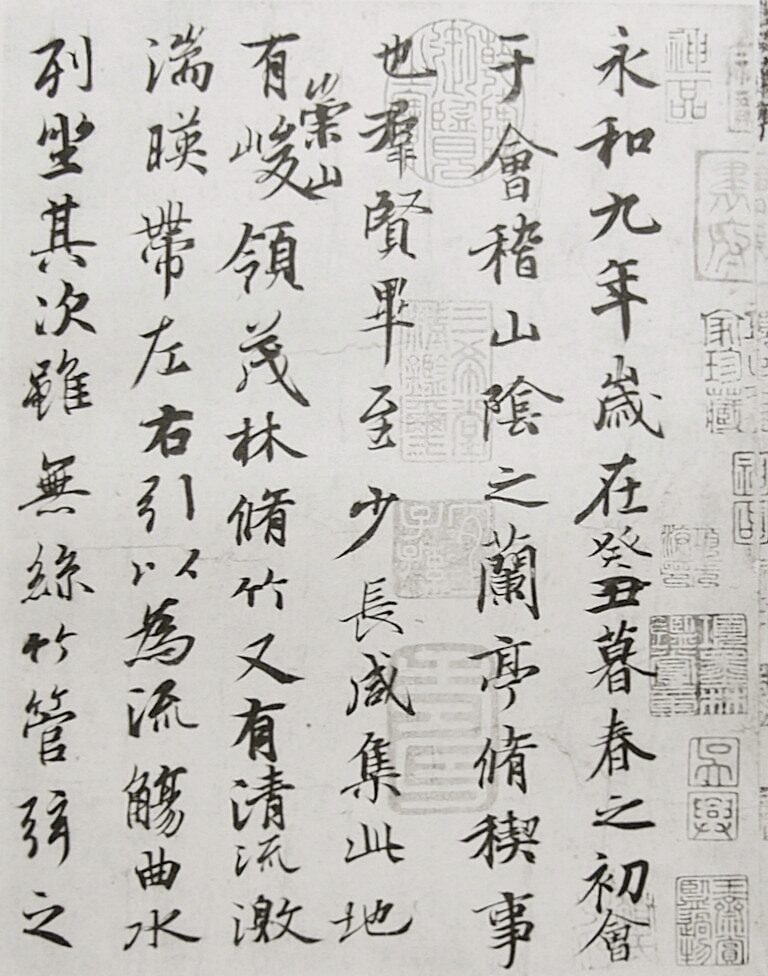 神品
家珍藏
吳興
永和九年歲在癸丑暮春之初會
于會稽山陰之蘭亭脩稧事
也羣賢畢至少長咸集此地
三希堂精鑑璽
宜子孫
有崇山峻領茂林脩竹又有清流激
湍暎帶左右引以為流觴曲水
列坐其次雖無絲竹管弦之